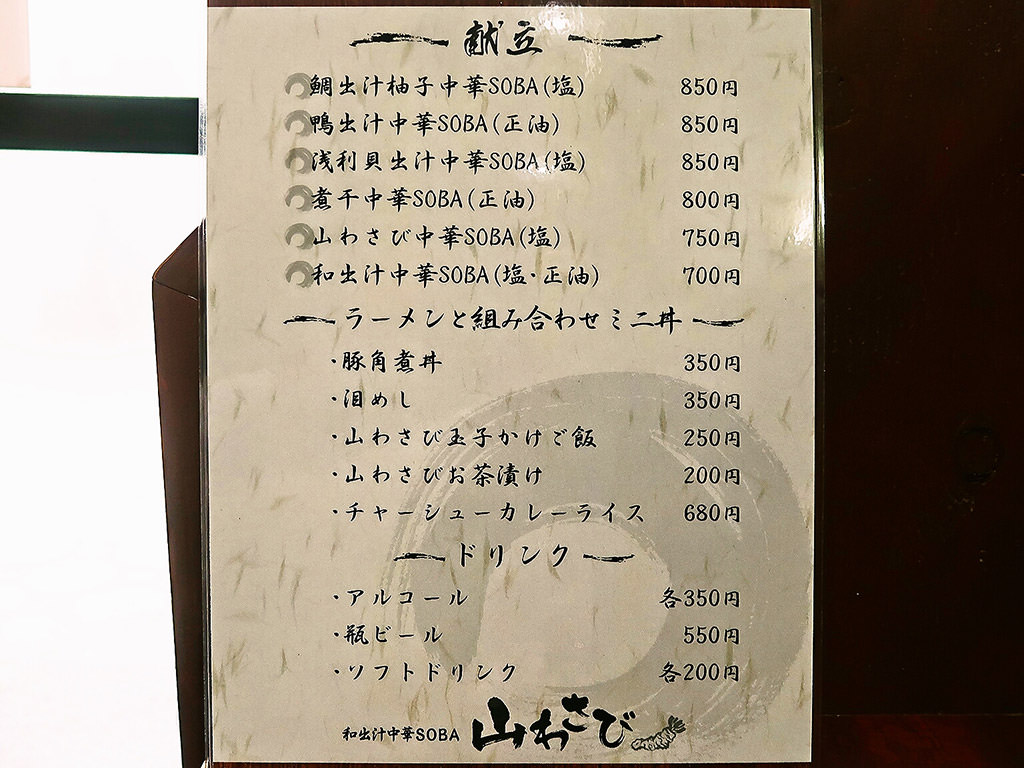 献立
鯛出汁柚子中華SOBA(塩) 850円
鴨出汁中華SOBA(正油) 850円
浅利貝出汁中華SOBA(塩) 850円
煮干中華SOBA(正油) 800円
山わさび中華SOBA(塩) 750円
和出汁中華SOBA(塩・正油) 700円
ラーメンと組み合わせミニ丼
・豚角煮丼 350円
・泪めし 350円
・山わさび玉子かけご飯 250円
・山わさびお茶漬け 200円
・チャーシューカレーライス 680円
ドリンク
・アルコール 各350円
・瓶ビール 550円
・ソフトドリンク 各200円
和出汁中華SOBA 山わさび